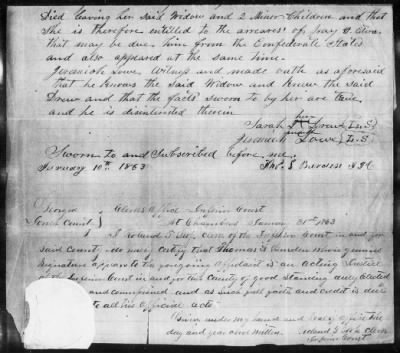 Died leaving her said Widow and 2 Minor Children and that
She is therefore entitled to the arreares of pay &
that may be due him from the Confederate States
and also appeared at the same time
Jeremiah Lowe Witness and made oath as aforesaid
that he knows the said Widow and knew the said
Drew and that the facts sworn to by her are true,
and he is disinterested therein
Sarah her Lowe [L.S]
mark
Jeremiah Lowe [L.S]
Sworn to and Subscribed before me
10th 1863 Thos. S
Georgia Clerks Office Court
Jones County At Chambers 31st 1863
I Roland T Clerk of the Court in and for
said County do certify that Thomas S whose genuine
Signature appears to the foregoing is an acting
of the Court in and for the County of good standing duly elected
and commissioned and as such full faith and credit is due
to all his Official Acts
Given under my hand and seal of office the
day and year above written Roland T Clerk
Court